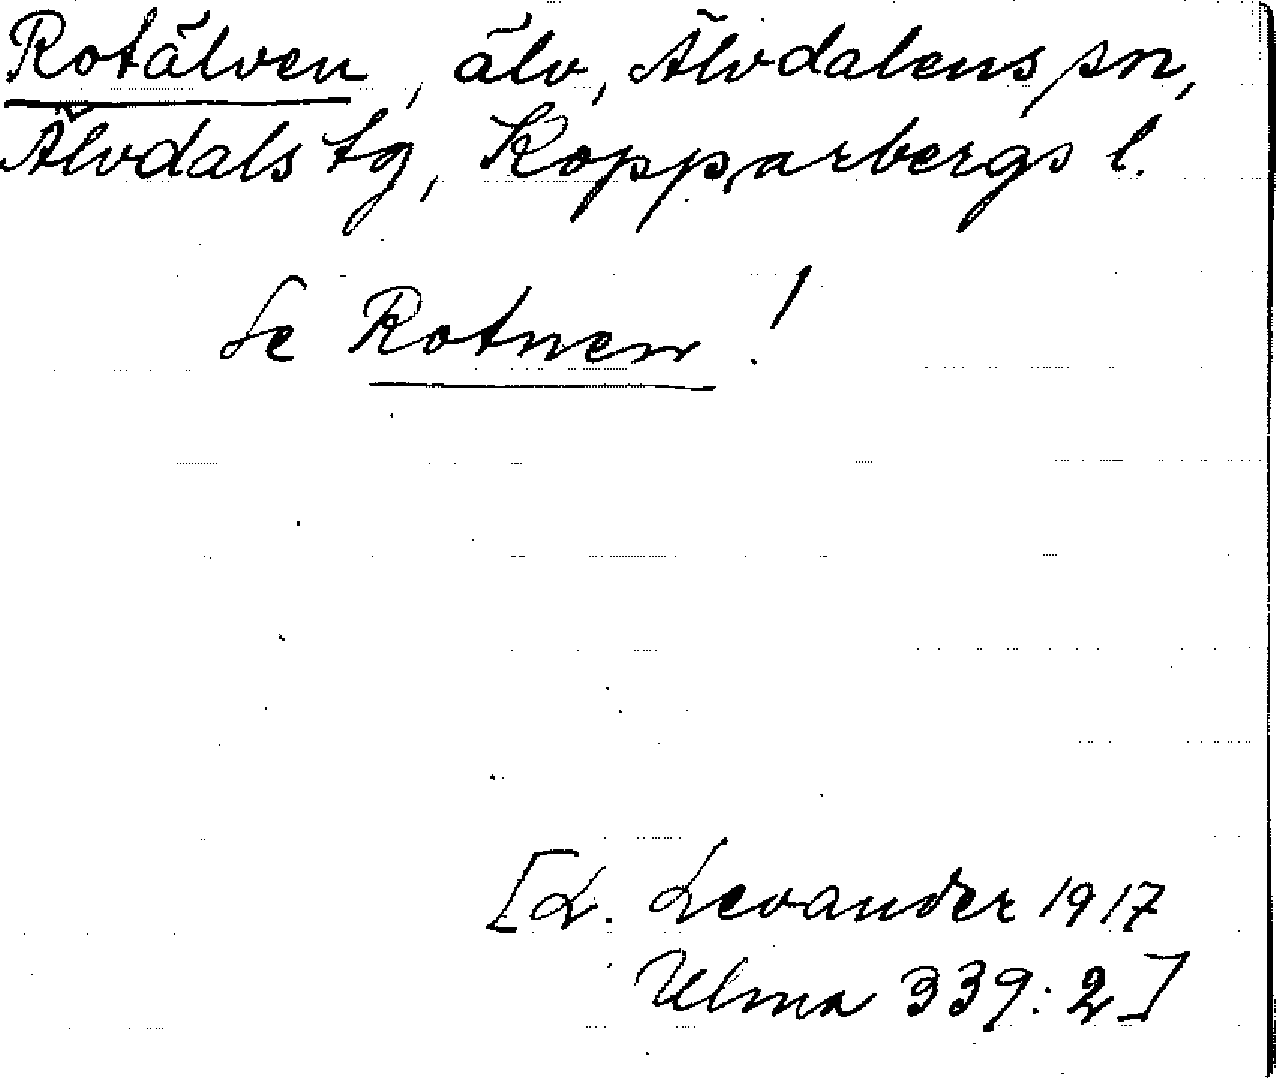 Rotälven, älv, Älvdalens sn,
Älvdals tg, Kopparbergs l.
Se Rotnen!
[L. Levander 1917
Ulma 339:2]